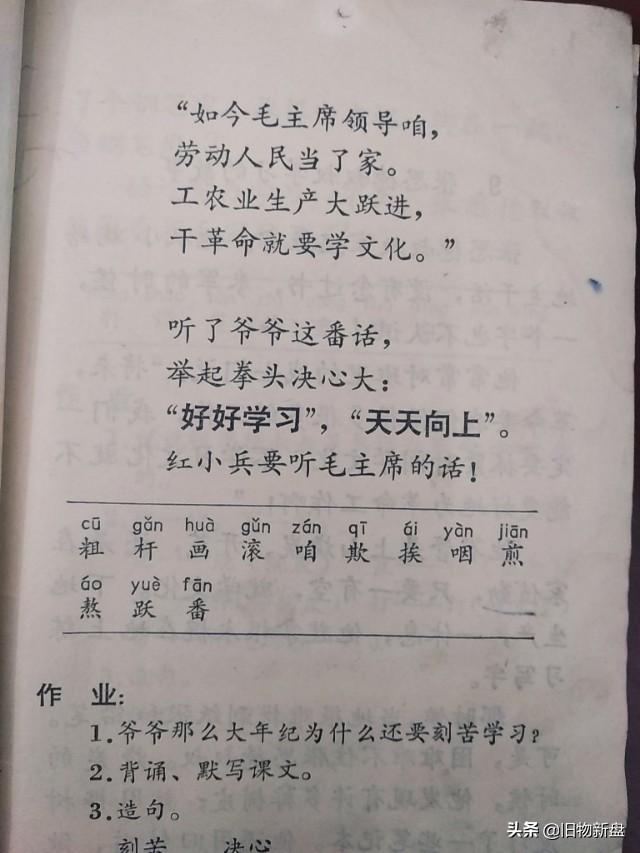 “如今毛主席领导咱，
劳动人民当了家。
工农业生产大跃进，
干革命就要学文化。”
听了爷爷这番话，
举起拳头决心大：
“好好学习”，“天天向上”。
红小兵要听毛主席的话！
cū gǎn huà gǔn zán qī ái yàn jiān
粗 杆 画 滚 咱 欺 挨 咽 煎
áo yuè fān
熬 跃 番
作 业：
1.爷爷那么大年纪为什么还要刻苦学习？
2.背诵、默写课文。
3.造句。
刻苦 决心
头条 @旧物新盘